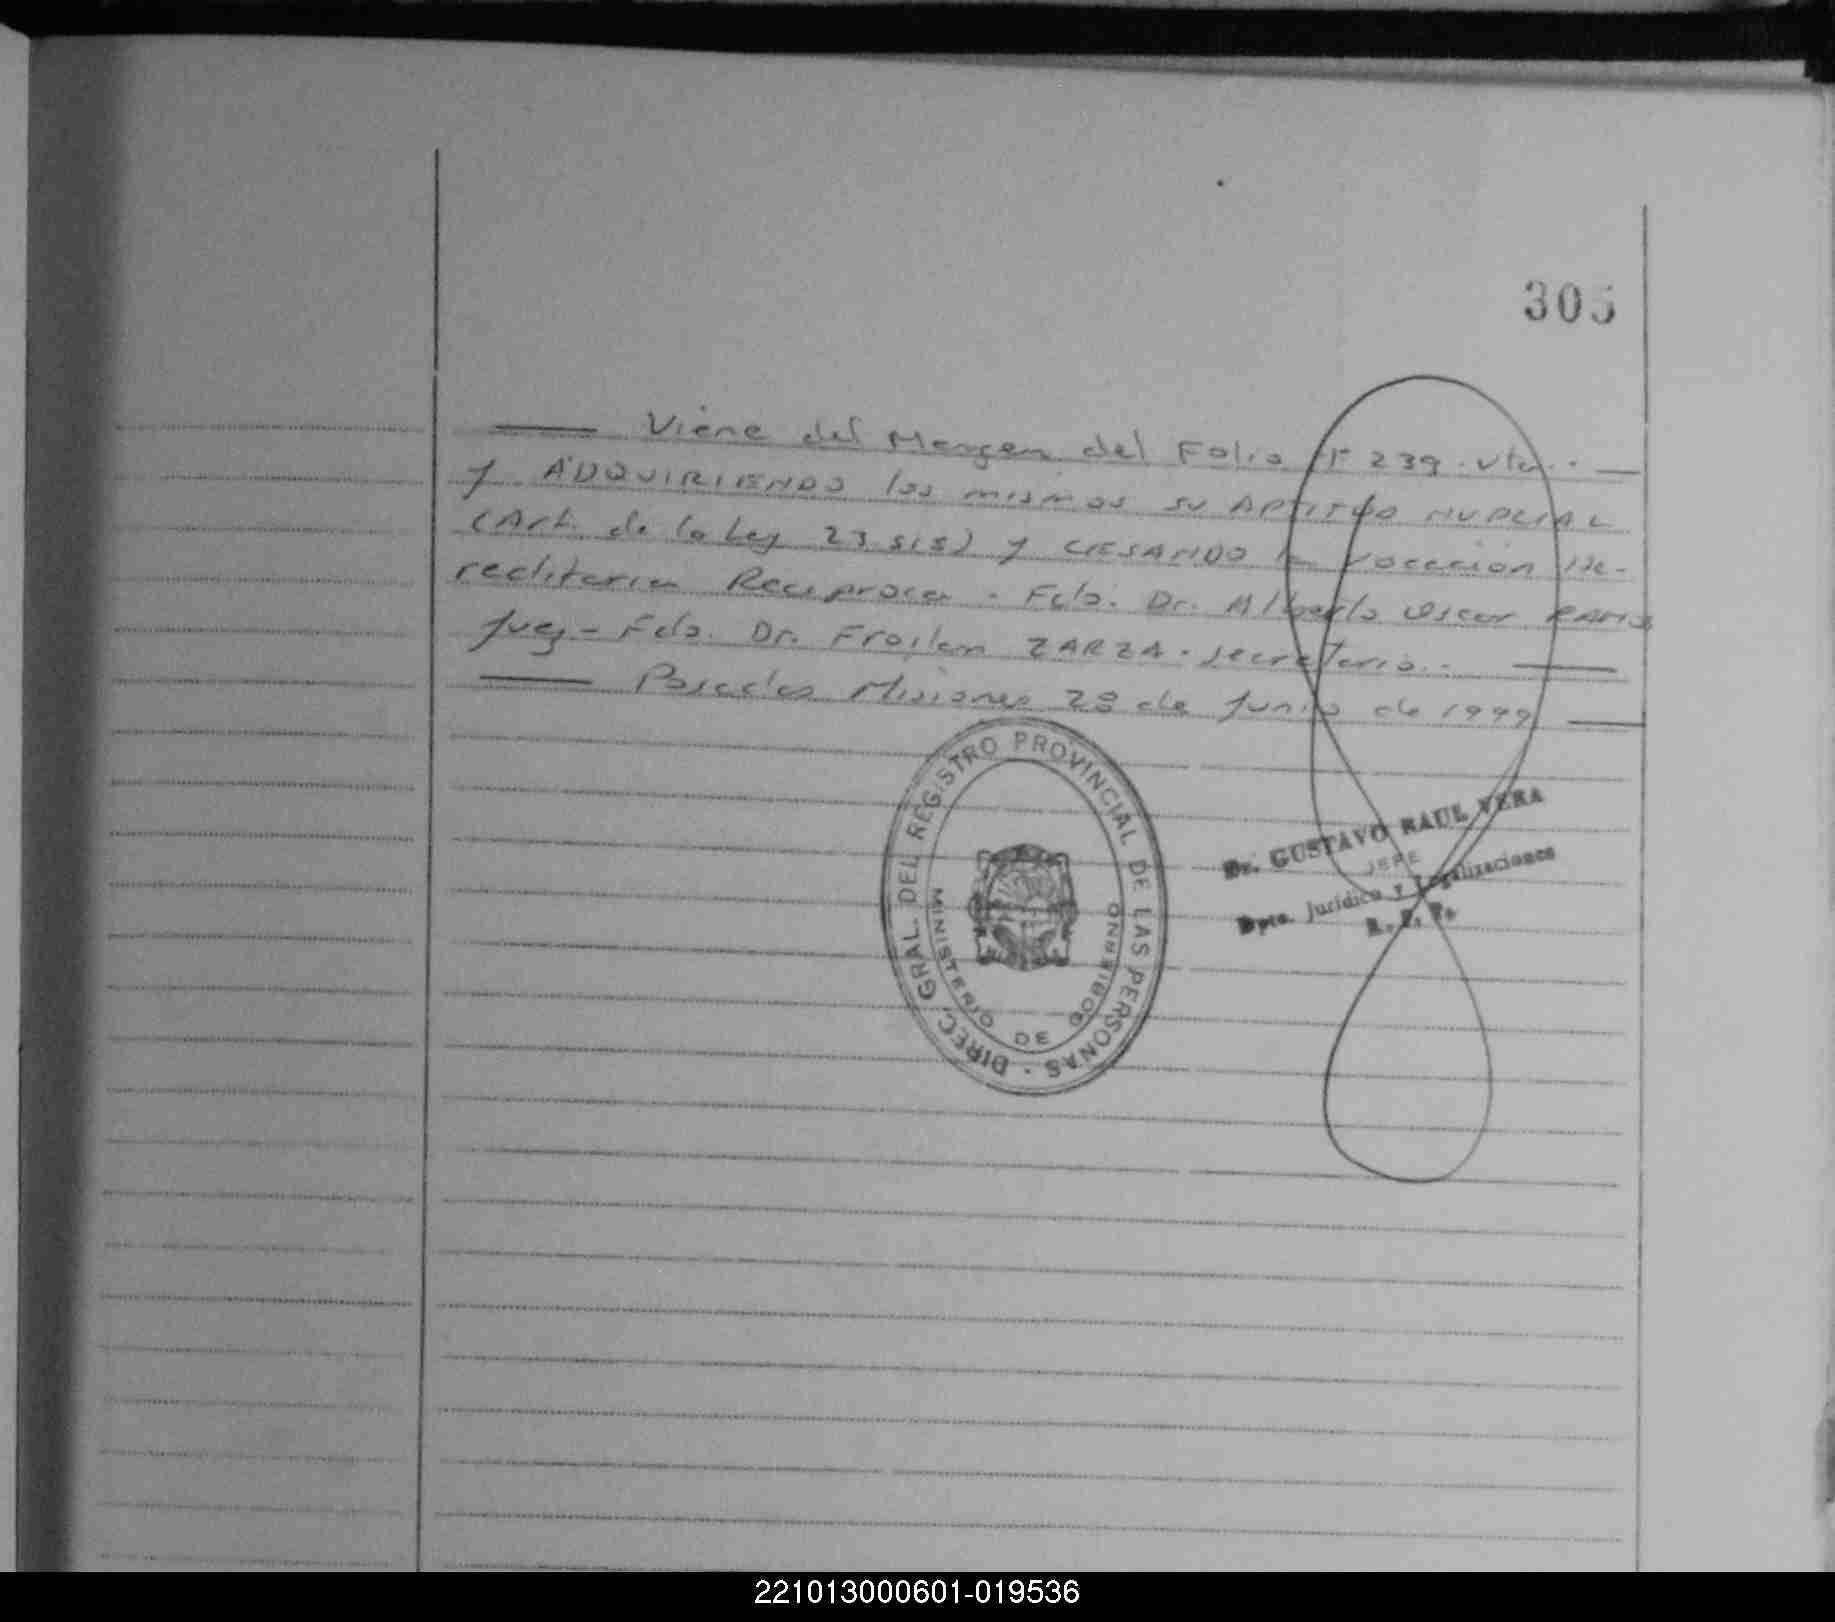 305
Viene del Margen del Folio Nº 239. vta..
y ADQUIRIENDO los mismos su APTITUD NUPCIAL
(Art. de la Ley 23.515) y CESANDO la vocacion He-
reditaria Reciproca. Fdo. Dr. Alberto Oscar RAMOS
Juez - Fdo. Dr. Froilan ZARZA. secretario..
Posadas Misiones 28 de Junio de 1999
DIREC. GRAL. DEL REGISTRO PROVINCIAL DE LAS PERSONAS
MINISTERIO DE GOBIERNO
Dr. GUSTAVO RAUL VERA
JEFE
Dpto. Jurídico y Legalizaciones
R. P. P.
221013000601-019536